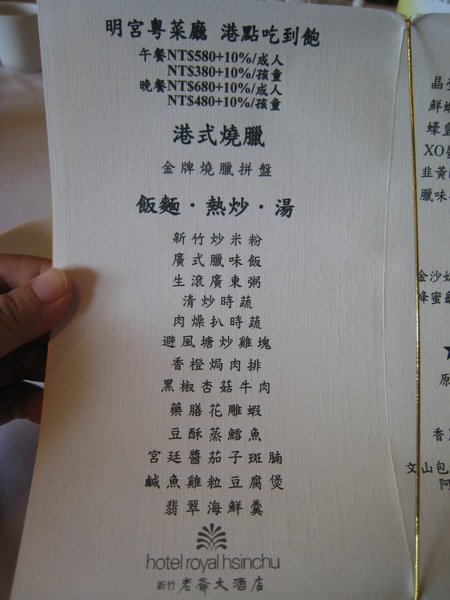 明宮粵菜廳 港點吃到飽
午餐NT$580+10%/成人
NT$380+10%/孩童
晚餐NT$680+10%/成人
NT$480+10%/孩童
港式燒臘
金牌燒臘拼盤
飯麵·熱炒·湯
新竹炒米粉
廣式臘味飯
生滾廣東粥
清炒時蔬
肉燥扒時蔬
避風塘炒雞塊
香橙焗肉排
黑椒杏菇牛肉
藥膳花雕蝦
豆酥蒸鱈魚
宮廷醬茄子斑腩
鹹魚雞粒豆腐煲
翡翠海鮮羹
hotel royal hsinchu
新竹 老爺大酒店
晶
鮮蝦
蠔皇
XO醬
韭黃
臘味
金沙奶
蜂蜜龜
★
原
香
文山包
阿